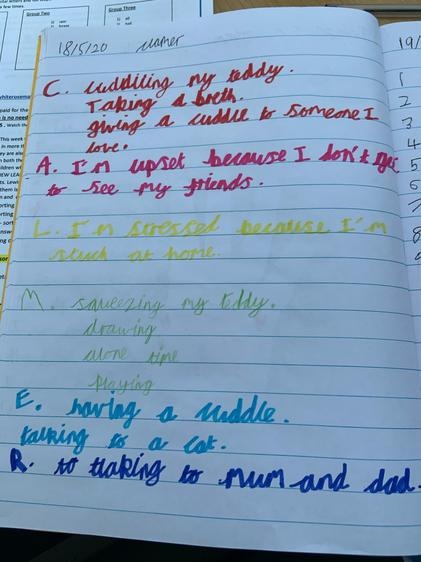 Group Two
Group Three
18/5/20 uamer
C. cuddiling my teddy.
Taking a breth.
giving a cuddle to someone I
love.
A. I'm upset because I don't get
to see my friends.
L. I'm stressed because I'm
stuck at home.
M. squeezing my teddy.
drawing
alone time
playing
E. having a cuddle.
talking to a cat.
R. to tlaking to mum and dad.
19/
1
2
3
4
5
6
7
8